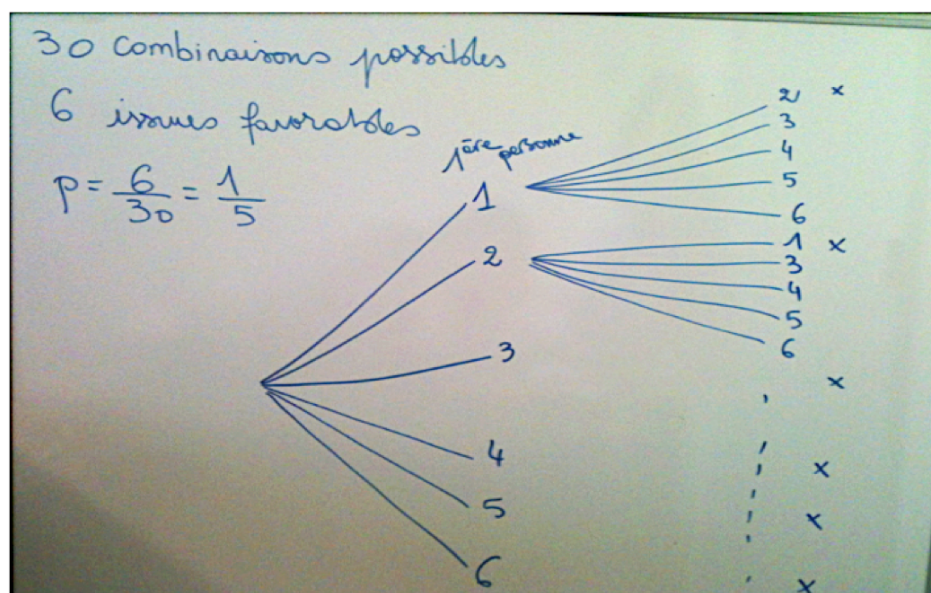 30 combinaisons possibles
6 issues favorables
p = 6/30 = 1/5
1ère personne
1
2
3
4
5
6
2 x
3
4
5
6
1 x
3
4
5
6
x
x
x
x